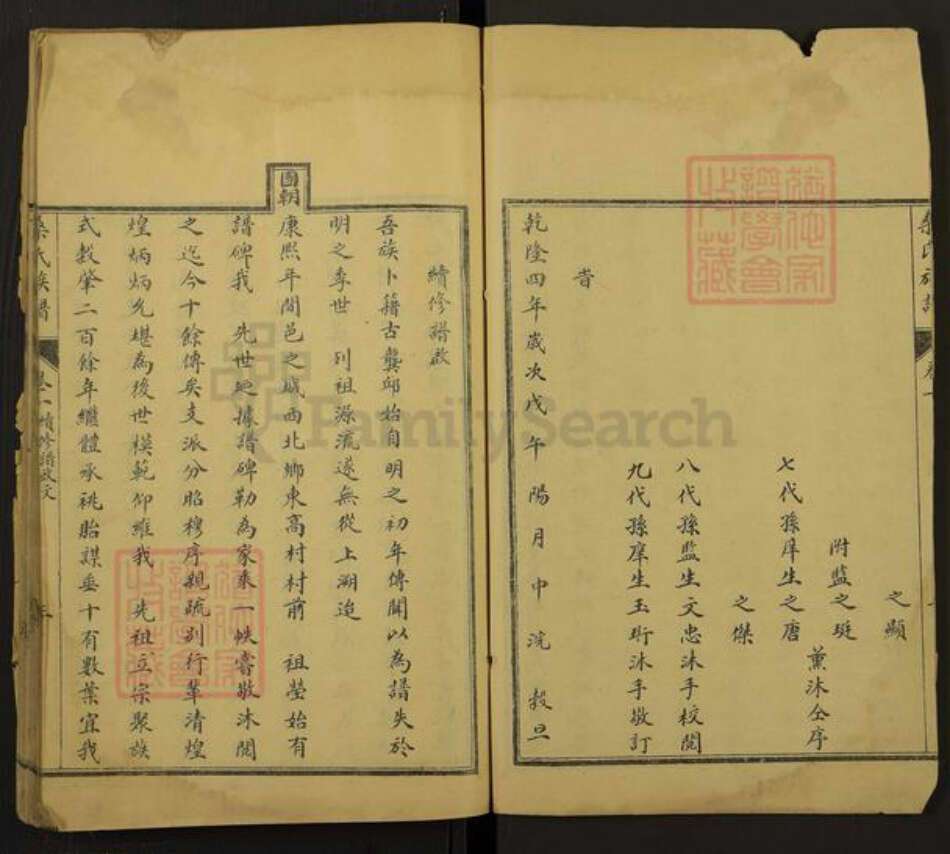 之顯
附監之珽
七代孫庠生之唐
薰沐仝序
之傑
八代孫監生文忠沐手校閱
九代孫庠生玉珩沐手敬訂
旹
乾隆四年歲次戊午陽月中浣穀旦
續修譜啟
吾族卜籍古龔邱始自明之初年傳聞以為譜失於
明之季世 列祖源流遂無從上溯追
國朝
康熙年間邑之城西北鄉東高村村前 祖塋始有
譜碑我 先世 據譜碑勒為家乘一帙嘗敬沐閱
之迄今十餘傳矣支派分昭穆序親疏別行輩清煌
煌炳炳允堪為後世模範仰維我 先祖立宗聚族
式穀肇二百餘年繼體承祧貽謀垂十有數葉宜我
氏族譜
卷一 續修譜啟文
氏族譜
卷一
FamilySearch